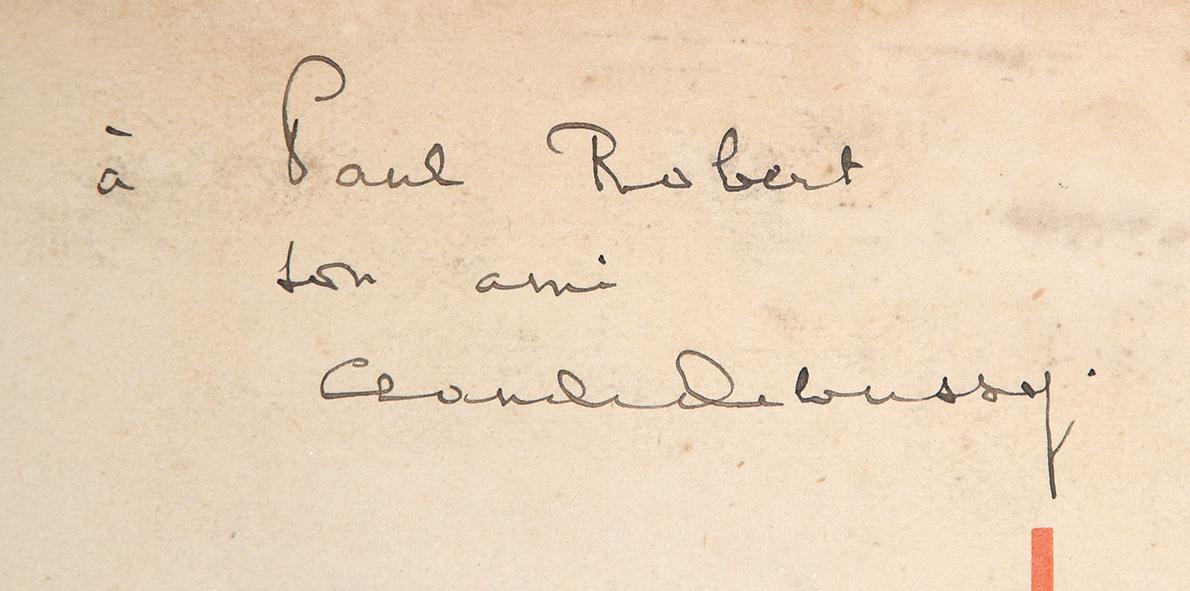 à Paul Robert
son ami
Claude Debussy.